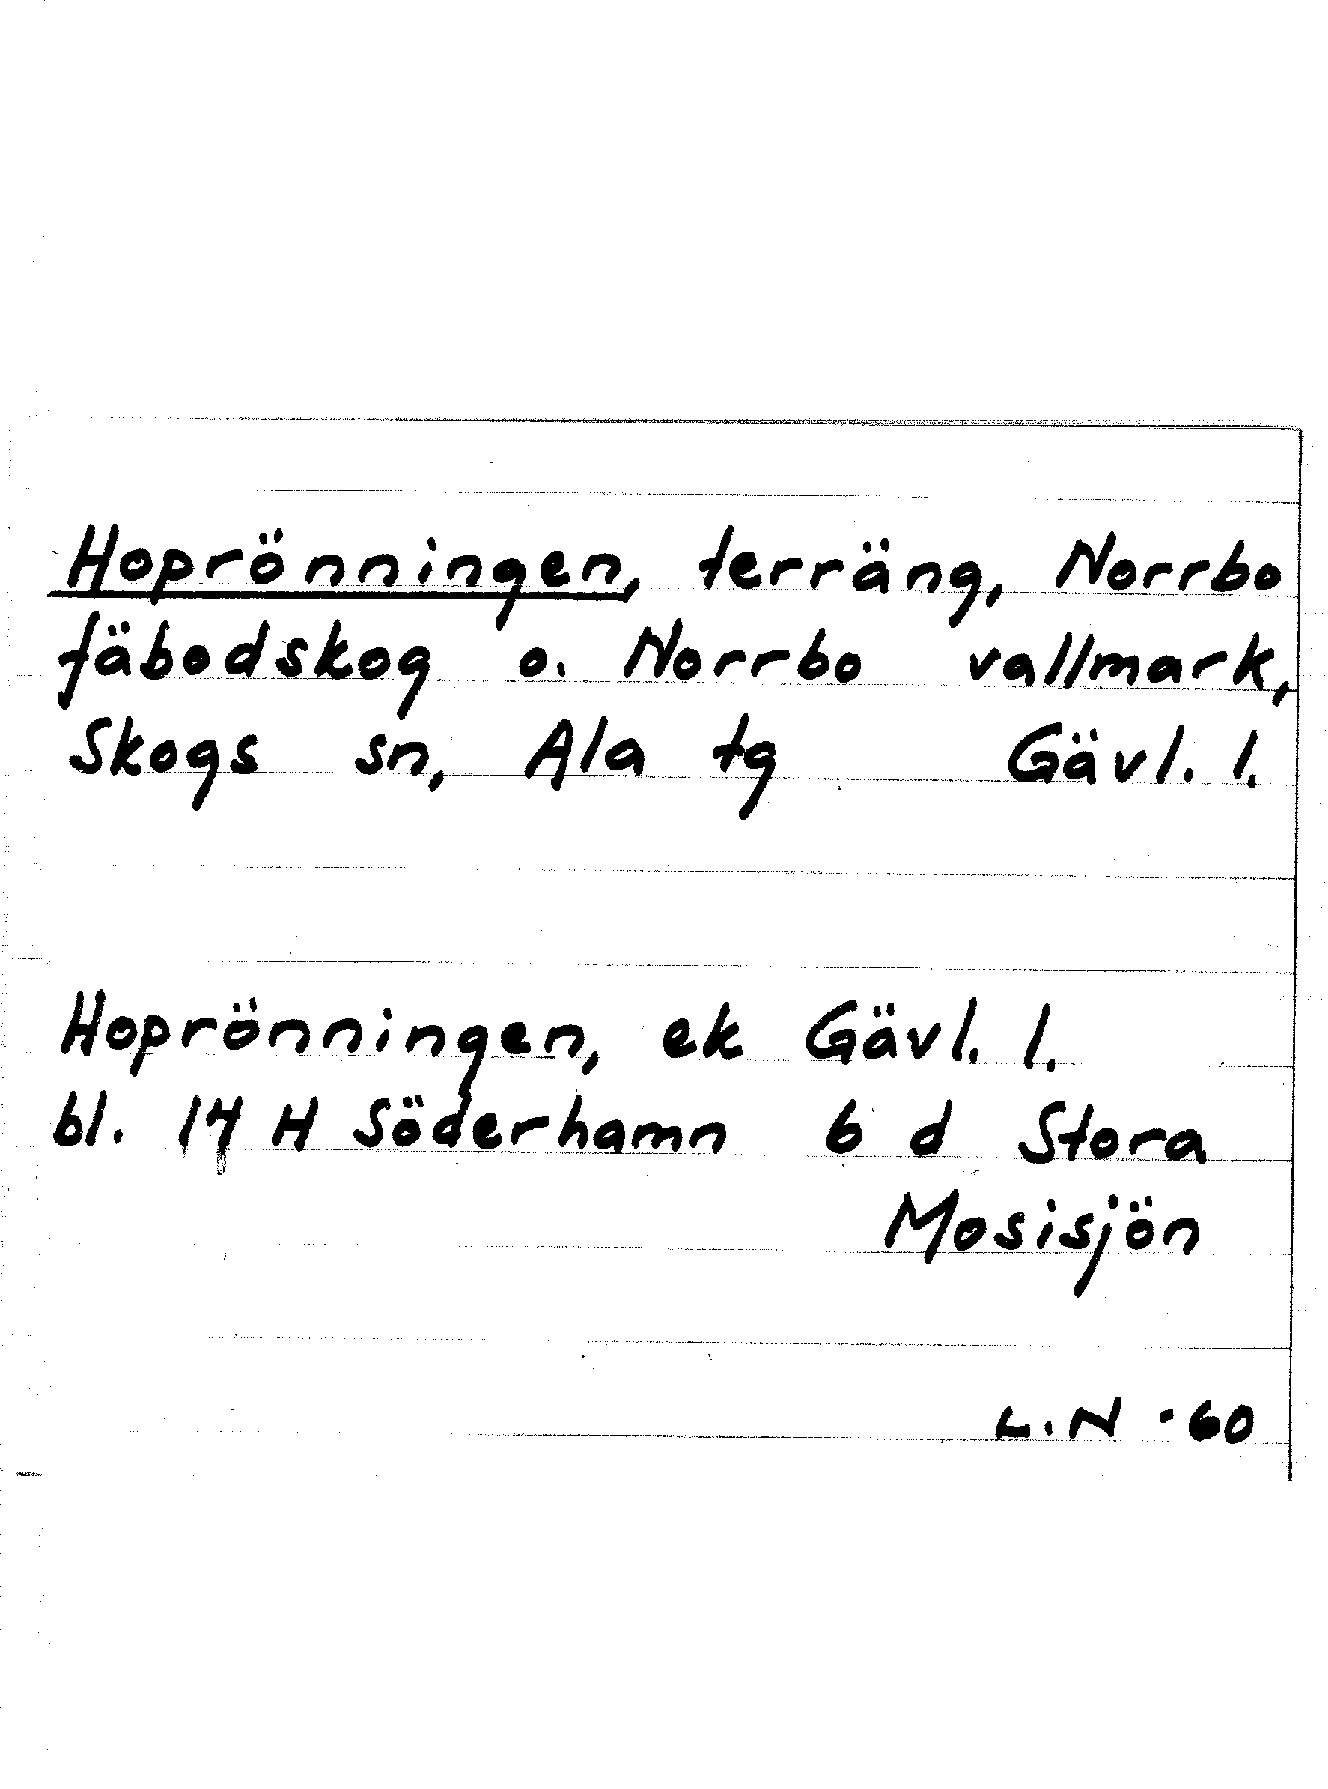 Hoprönningen, terräng, Norrbo
fäbodskog o. Norrbo vallmark,
Skogs sn, Ala tg Gävl. l.
Hoprönningen, ek Gävl. l.
bl. 14 H Söderhamn 6 d Stora
Mosisjön
L.N -60